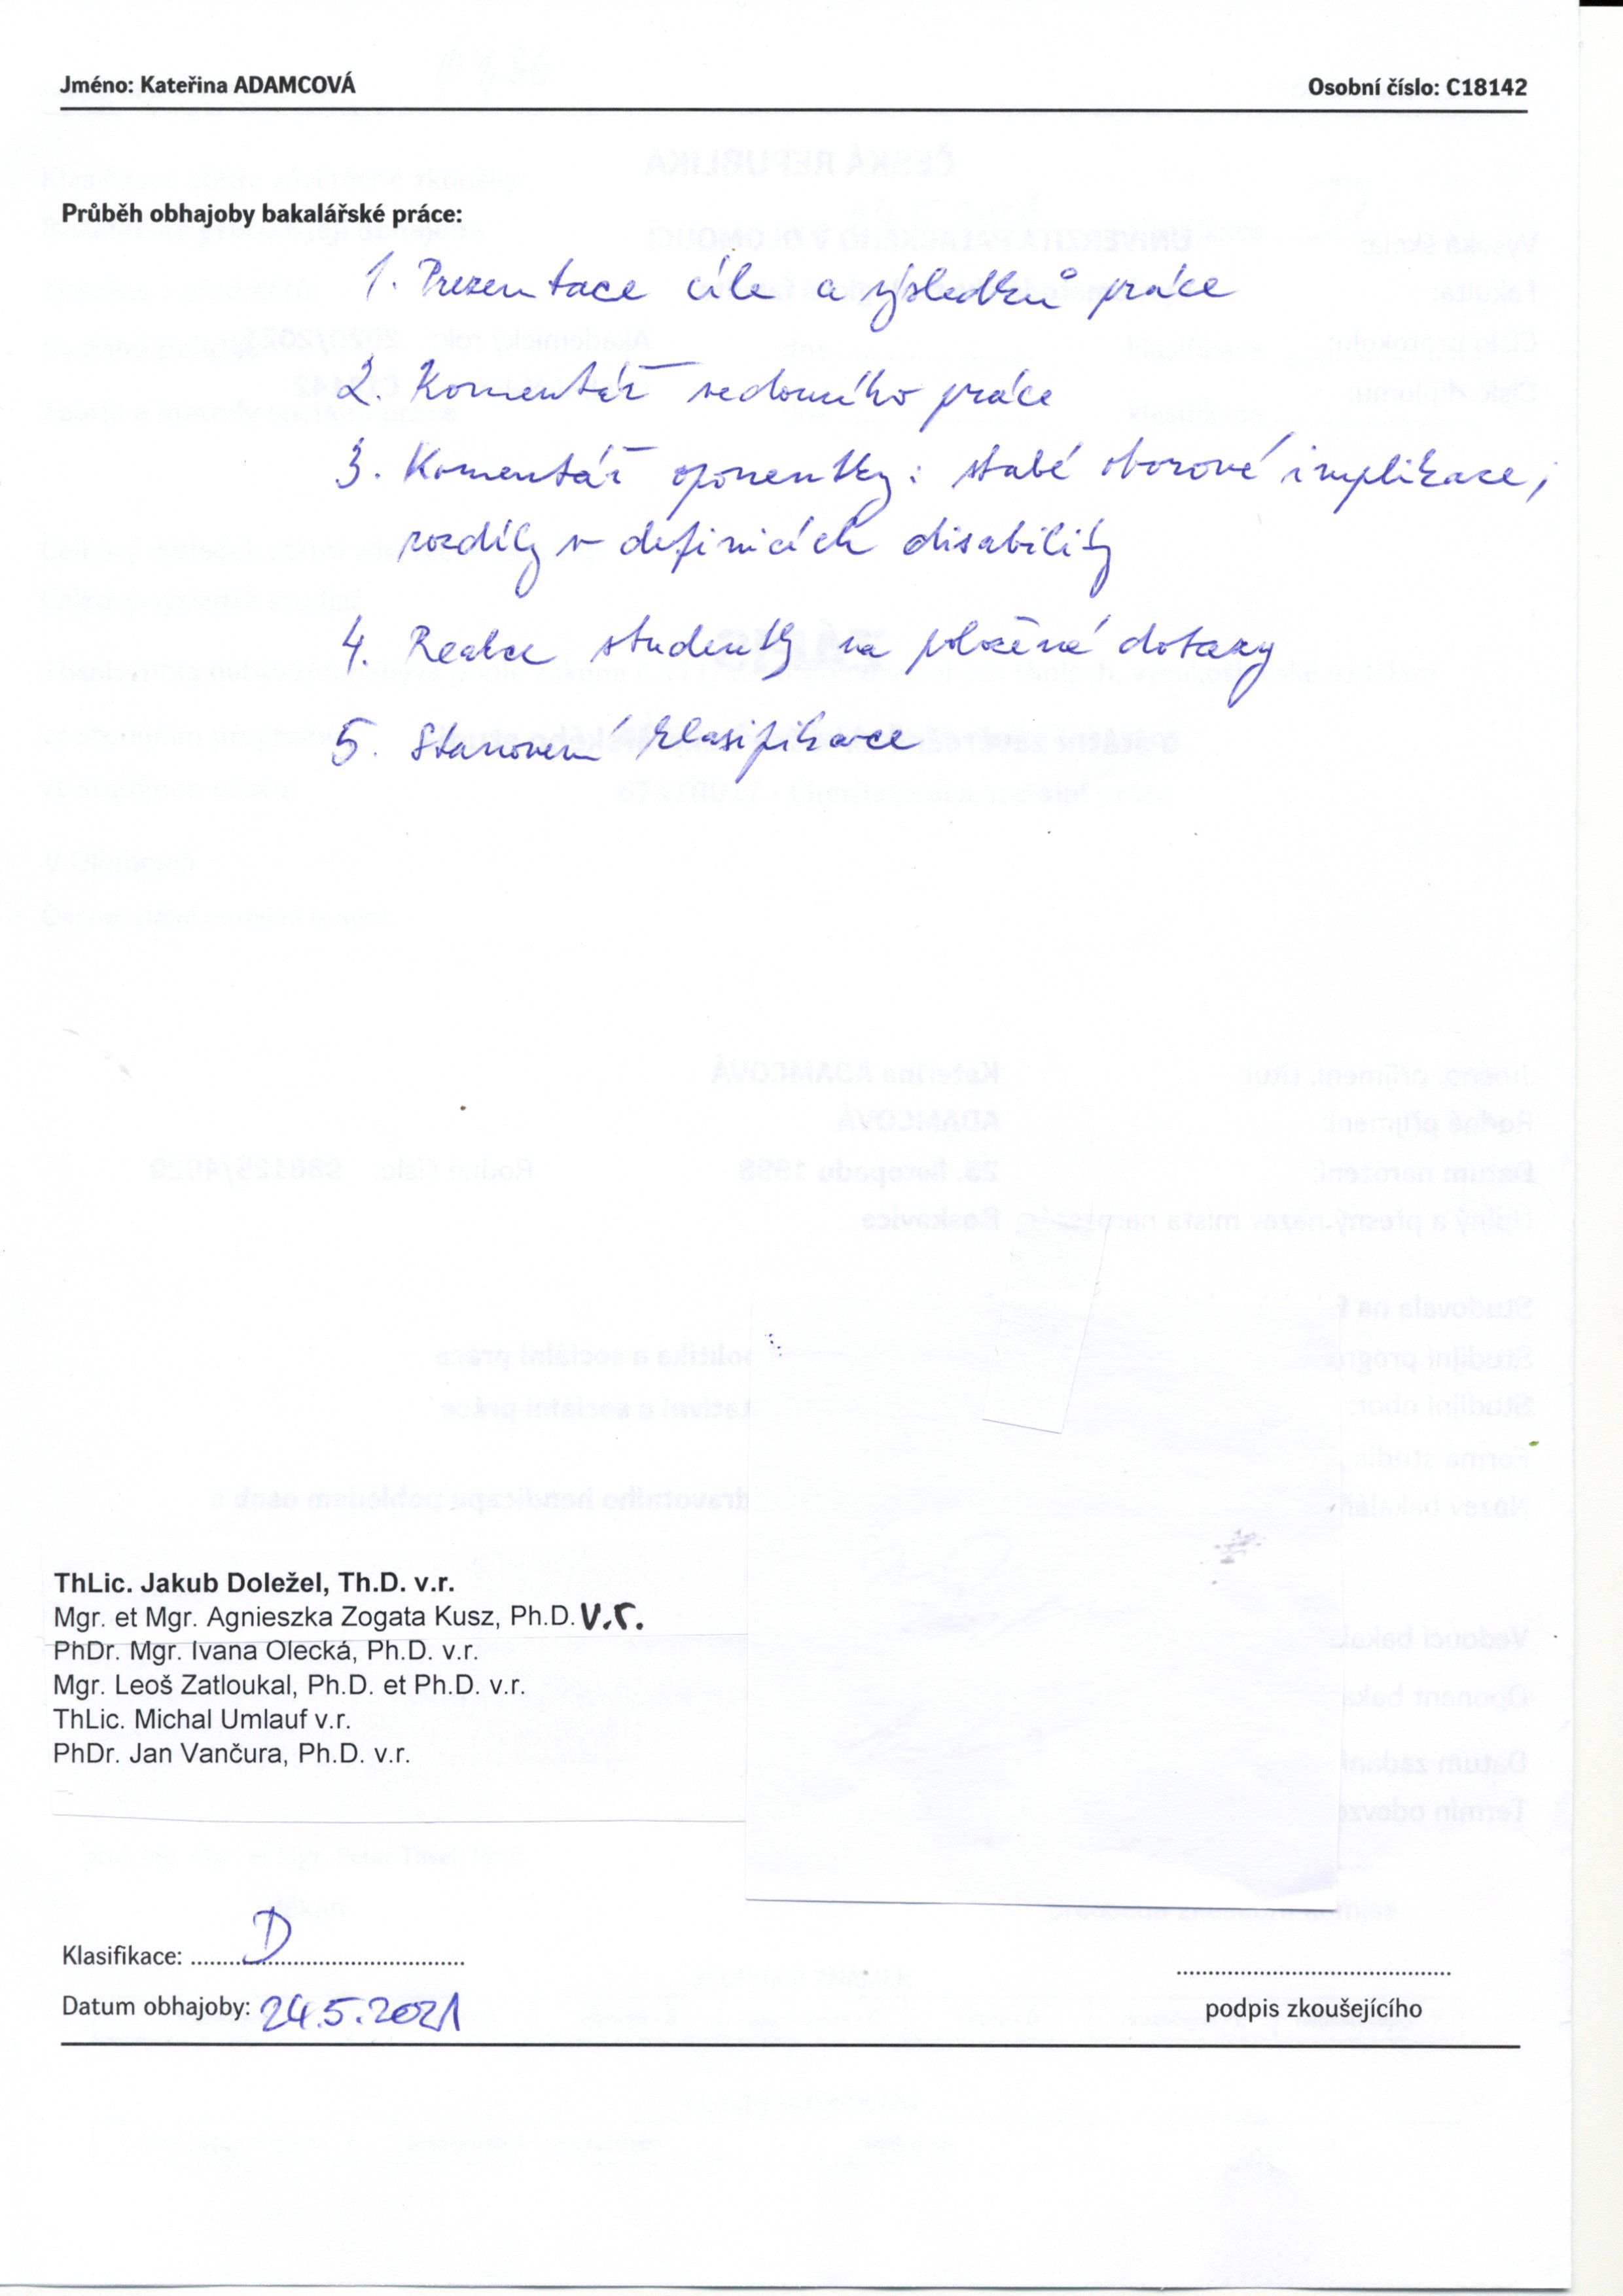 Jméno: Kateřina ADAMCOVÁ Osobní číslo: C18142
Průběh obhajoby bakalářské práce:
1. Prezentace cíle a výsledků práce
2. Komentář vedoucího práce
3. Komentář oponentky: slabé oborové implikace,
rozdíly v definicích disability
4. Reakce studentky na položené dotazy
5. Stanovení klasifikace
ThLic. Jakub Doležel, Th.D. v.r.
Mgr. et Mgr. Agnieszka Zogata Kusz, Ph.D. v.r.
PhDr. Mgr. Ivana Olecká, Ph.D. v.r.
Mgr. Leoš Zatloukal, Ph.D. et Ph.D. v.r.
ThLic. Michal Umlauf v.r.
PhDr. Jan Vančura, Ph.D. v.r.
Klasifikace: D
Datum obhajoby: 24.5.2021
podpis zkoušejícího